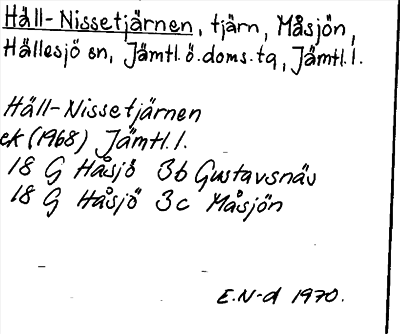 Häll-Nissetjärnen, tjärn, Måsjön,
Hällesjö sn, Jämtl.ö.doms.tq, Jämtl.l.
Häll-Nissetjärnen
ek (1968) Jämtl.l.
18 G Håsjö 3b Gustavsnäs
18 G Håsjö 3c Måsjön
E.N-d 1970.